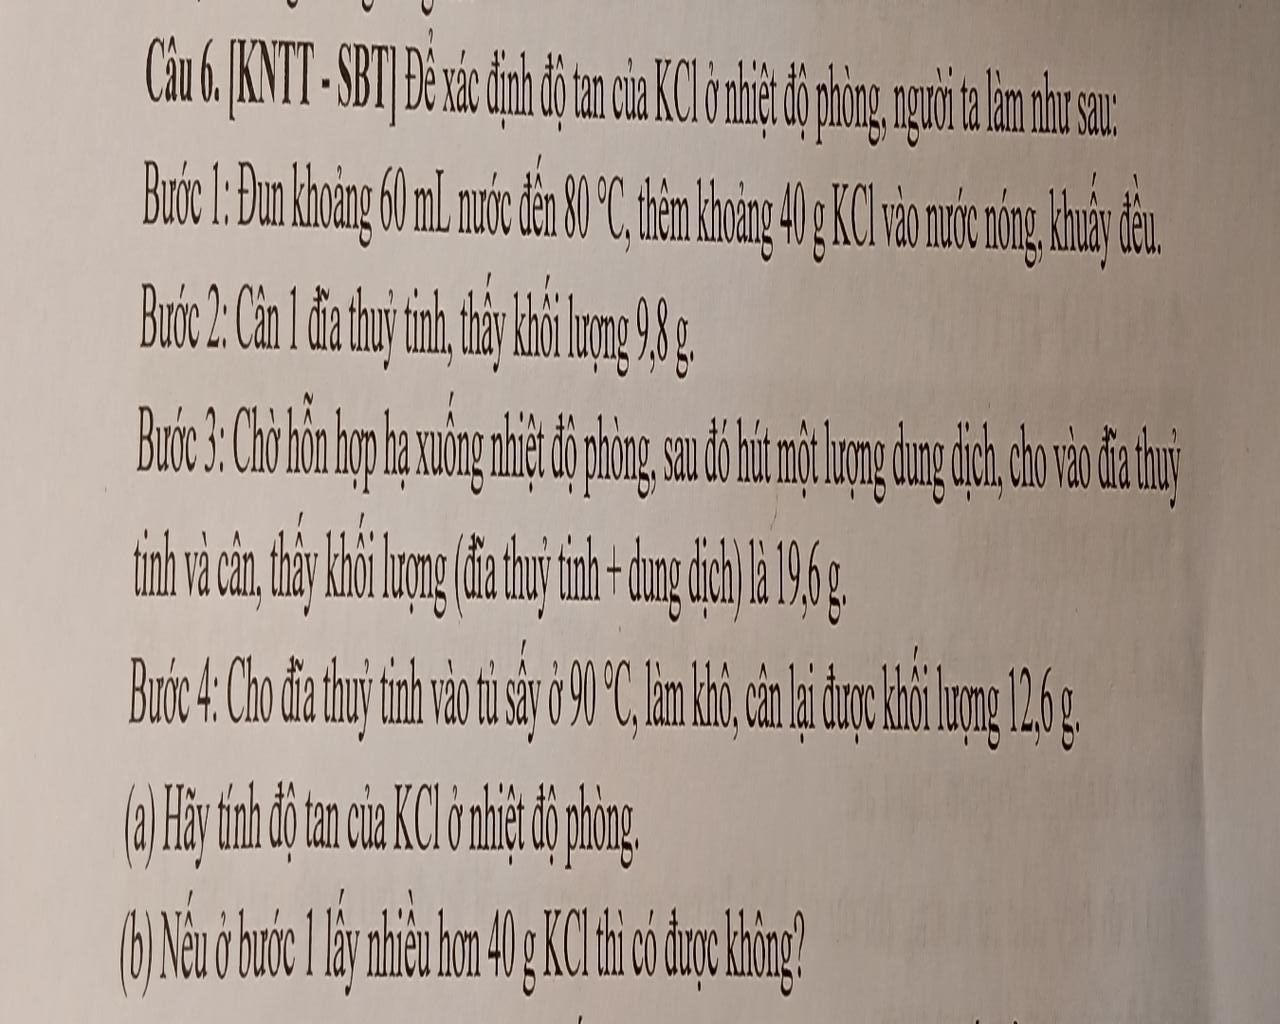 Câu 6. [KNTT - SBT] Để xác định độ tan của KCl ở nhiệt độ phòng, người ta làm như sau:
Bước 1: Đun khoảng 60 mL nước đến 80 °C, thêm khoảng 40 g KCl vào nước nóng, khuấy đều.
Bước 2: Cân 1 đĩa thuỷ tinh, thấy khối lượng 9,8 g.
Bước 3: Chờ hỗn hợp hạ xuống nhiệt độ phòng, sau đó hút một lượng dung dịch, cho vào đĩa thuỷ
tinh và cân, thấy khối lượng (đĩa thuỷ tinh + dung dịch) là 19,6 g.
Bước 4: Cho đĩa thuỷ tinh vào tủ sấy ở 90 °C, làm khô, cân lại được khối lượng 12,6 g.
(a) Hãy tính độ tan của KCl ở nhiệt độ phòng.
(b) Nếu ở bước 1 lấy nhiều hơn 40 g KCl thì có được không?